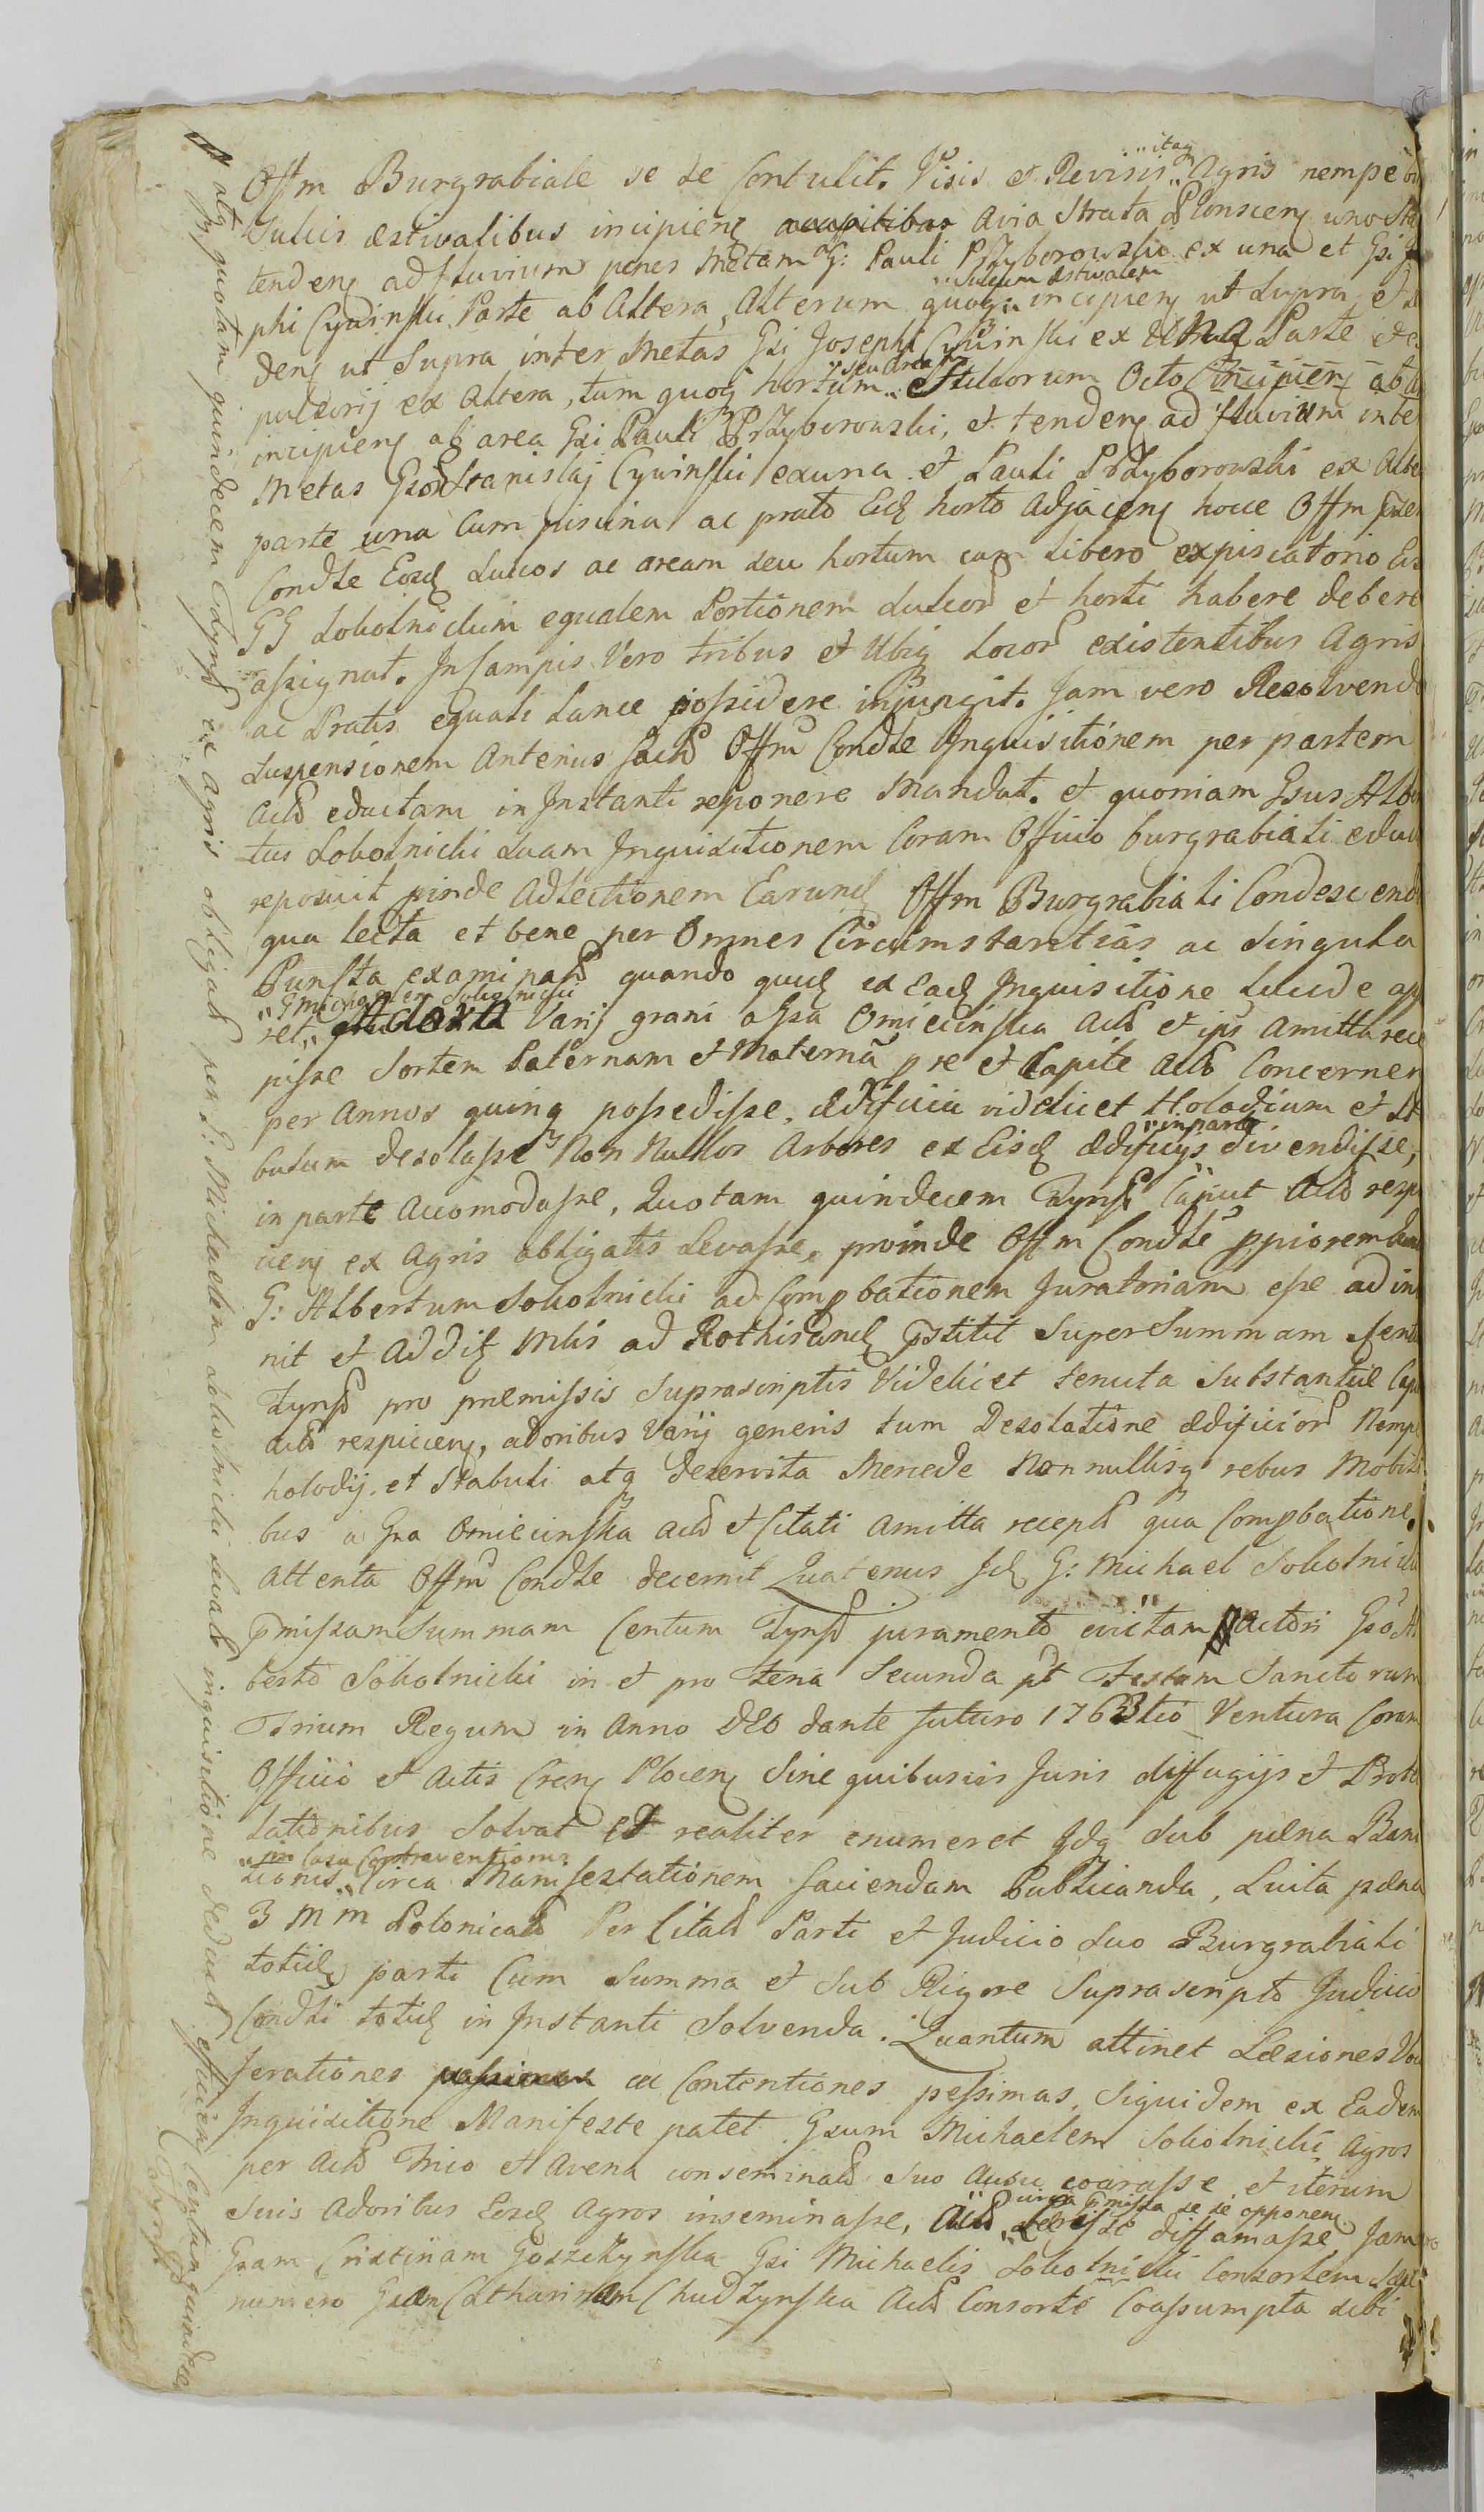 Offm Burgrabiale se se Contulit. Visis et Revisis "itaq Agris nempe
Sulcis æstivalibus incipien avia strata Plonscen uno
tenden ad fluvium penes Metam G: Pauli Przyborowski ex una et Gsi
phi Cywinski Parte ab Altera, Alterum quoq "sulcum æstivalem incipien ut supra et
den ut Supra inter Metas Gsi Josephi Cywinski ex una Parte
ex Altera, tum quoq hortum "seu aream Sulcorum Octo incipien ab
incipien ab area Gsi Pauli Przyborowski, et tenden ad fluvium inte
Metas Gsor Stanislaj Cywinski ex una et Pauli Przyborowski ex Alte
parte una Cum piscina ac prato Eid horto Adjacen hocce Offm
Condle Eosd sulcos ac aream seu hortum cum libero expiscatorio
GG Sokolnickim equalem Portionem sulcor et horti habere debere
assignat. In Campis Vero tribus et Ubiq Locor existentibus Agris
ac Pratis equali Lance possidere injungit. Jam vero Resolvendo
suspensionem Anterius fact Offm Condle Inquisitionem per partem
Act eductam in Instanti reponere Mandat. et quoniam Gsus Alber
tus Sokolnicki suam Inquisitionem Coram Officio burgrabiali
reposuit pinde Ad Lectionem Earund Offm Burgrabiali Condescend
qua lecta et bene per Omnes Circumstantias ac Singula
Puncta examinat quando quid ex Ead Inquisitione Lucide
ret "G Michaelem Sokolnicki Varij grani a Gsa Omiecinska Act et ips Amitta rece
pisse Sortem Paternam et Maternā pre et Capite Act Concernen
per Annos quinq possedisse, ædificia videlicet Holodium et
bulum desolasse Non Nullos Arbores ex Eisd ædificijs "in parte divendisse,
in parte Accomodasse, Quotam quindecem Tynf Caput Act resp
cien ex Agris obligatis Levasse, proinde Offm Condle ppiorem
G: Albertum Sokolnicki ad Compbationem Juratoriam esse ad in
nit et Addit Mlis ad Rothisand pstitit Super Summam Cent
Tynf pro præmissis Suprascriptis Videlicet tenuta Substantiæ
Act respicien, adoribus Varij generis tum Desolatione ædificior Nempe
holodij et Stabuli atq deservita Mercede Non nullisq rebus Mobili
bus a Gsa Omiecinska Act et Citati Amitta recept qua Compbatione
Attenta Offm Condle decernit Quatenus Id G: Michael Sokolnicki
pmissam Summam Centum Tynf juramento evictam Actori Gso Al
berto Sokolnicki in et pro Fena Secunda pt Festum Sanctorum
Trium Regum in Anno DEO dante futuro 1763tio Ventura Coram
Officio et Actis Cren Plocen Sine quibusvis Juris diffugijs et Prote
lationibus Solvat et realiter enumeret Idq sub pæna Bani
tionis "in Casu Contraventionis Circa Manifestationem faciendam Publicanda, Luita pæna
3 Mm Polonical Per Citat Parti et Judicio suo Burgrabiali
totid parti Cum Summa et Sub Rigore Suprascripto Judicio
Condli totid in Instanti Solvenda. Quantum attinet Læsiones
ferationes ac Contentiones pessimas, Siquidem ex Eadem
Inquisitione Manifeste patet Gsum Michaelem Sokolnicki Agros
per Act Trico et Avena conseminat suo Ausu coarasse et iterum
Suis Adoribus Eosd Agros inseminasse, Act "circa pmissa se se opponen diffamasse Jam
Gsam Cristinam Goszczynska Gsi Michaelis Sokolnicki Consortem
numero Gsam Catharinam Chudzynska Act Consorte Coassumpta sibi
atq quotam quindecem Tynf ex Agris obligat per G: Michaelem Sokolnicki levat inquisitione deduct efficien Centum quindece
Tynf.